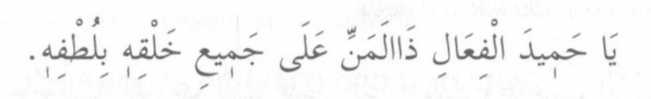 يَا حَمٖيدَ الْفِعَالِ ذَاالَمَنِّ عَلَى جَمٖيعِ خَلْقِهٖ بِلُطْفِهٖ.